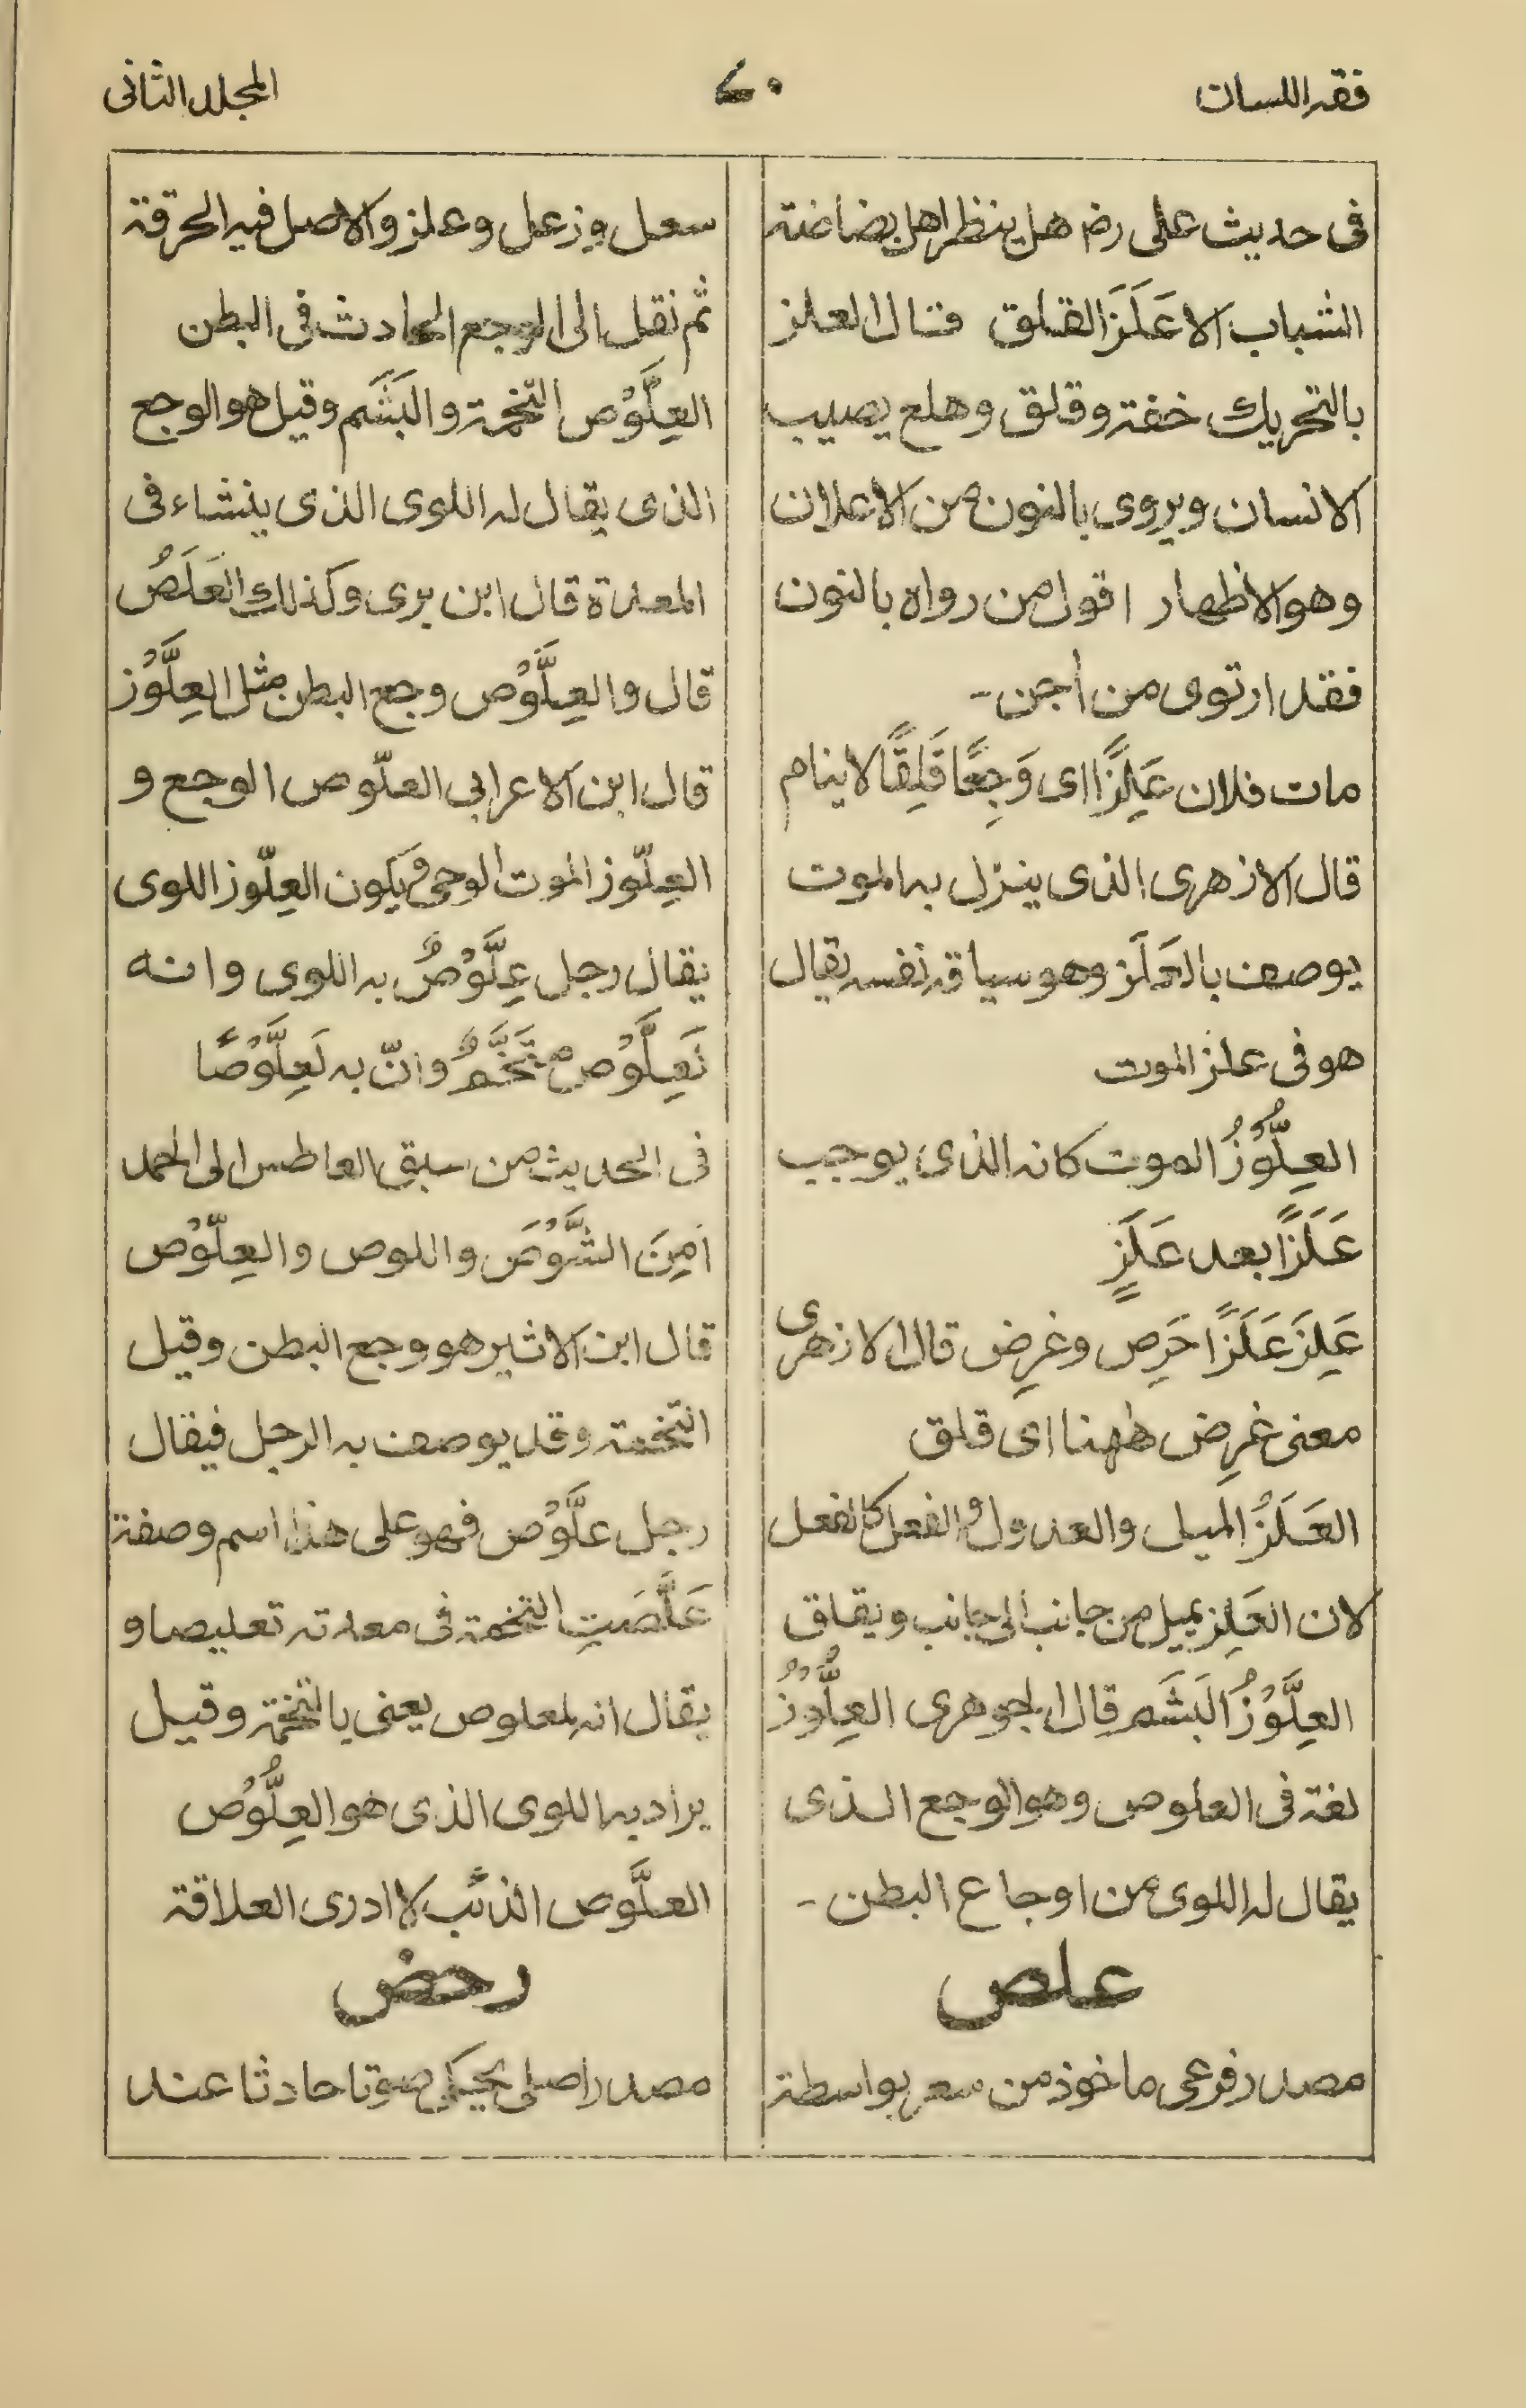 فقہ اللسان
۷۰
المجلد الثانی
فی حدیث علی رضہ هل ینتظر اهل بضاضتہ
الشباب الا عَلَزَ القلق قال العلز
بالتحریك خفتہ و قلق و هلع یصیب
الانسان و یروی بالنون من الاعلان
و هو الاظهار اقول من رواہ بالنون
فقد ارتوی من اٰجن -
مات فلان عَلِزًا ای وَجِعًا قَلِقًا لا ینام
قال الازهری الذی ینزل بہ الموت
یوصف بالعَلَز و هو سیاقہ نفسہ یقال
هو فی علز الموت
العِلَّوْزُ الموت کانہ الذی یوجب
عَلَزًا بعد عَلَزٍ
عَلِزَ عَلَزًا حَرِص و غرِض قال الازهری
معنی غرِض ھٰهنا ای قلق
العَلَزُ المیل و العدول و الفعل کالفعل
لان العَلِز یمیل من جانب الی جانب و یقلق
العِلَّوْزُ البَشَم قال الجوهری العِلَّوْزُ
لغة فی العلوص و هو الوجع الذی
یقال لہ اللوی من اوجاع البطن -
علص
مصدر فرعی ماخوذ من سعر بواسطة
سعل و زعل و علز و الاصل فیہ الحرقة
ثم نقل الی الوجع الحادث فی البطن
العِلَّوْص التخمة و البَشَم و قیل هو الوجع
الذی یقال لہ اللوی الذی ینشاء فی
المعدة قال ابن بری و کذلك العَلَصُ
قال و العِلَّوْص وجع البطن مثل العِلَّوْز
قال ابن الاعرابی العلّوص الوجع و
العِلّوز الموت الوحی و یکون العِلّوز اللوی
یقال رجل عِلَّوْصٌ بہ اللوی و انه
لَعِلَّوْص مُتَّخَمٌ و انّ بہ لَعِلَّوْصًا
فی الحدیث من سبق العاطس الی الحمد
اَمِنَ الشَّوْصَ و اللوص و العِلّوْص
قال ابن الاثیر هو وجع البطن و قیل
التخمة و قد یوصف بہ الرجل فیقال
رجل علَّوْص فهو علی هذا اسم و صفة
عَلَّصَتِ التخمة فی معدتہ تعلیصا و
یقال انہ لمعلوص یعنی بالتخمة و قیل
یراد بہ اللوی الذی هو العِلَّوْص
العلَّوص الذئب لا ادری العلاقة
رحض
مصدر اصلی یحیکی صوتا حادثا عند